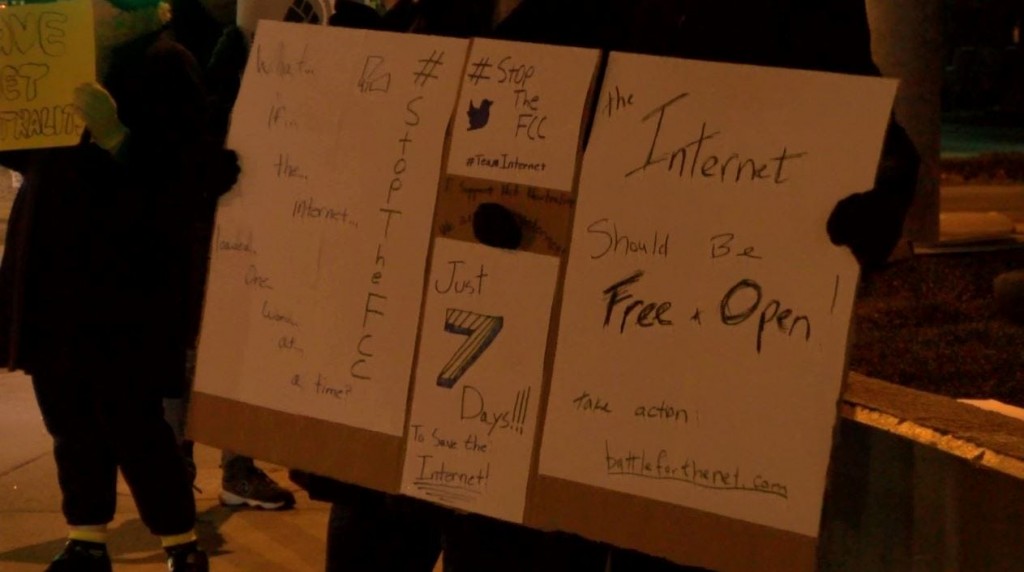 AVE
ET
TRALITY
What..
if..
the..
internet..
loaded..
One..
word..
at..
a time?
#
S
t
o
p
T
h
e
F
C
C
#Stop
The
FCC
#TeamInternet
I Support Net Neutrality
Just
7
Days!!!
To Save the
Internet!
the
Internet
Should Be
Free + Open!
take action:
battleforthenet.com